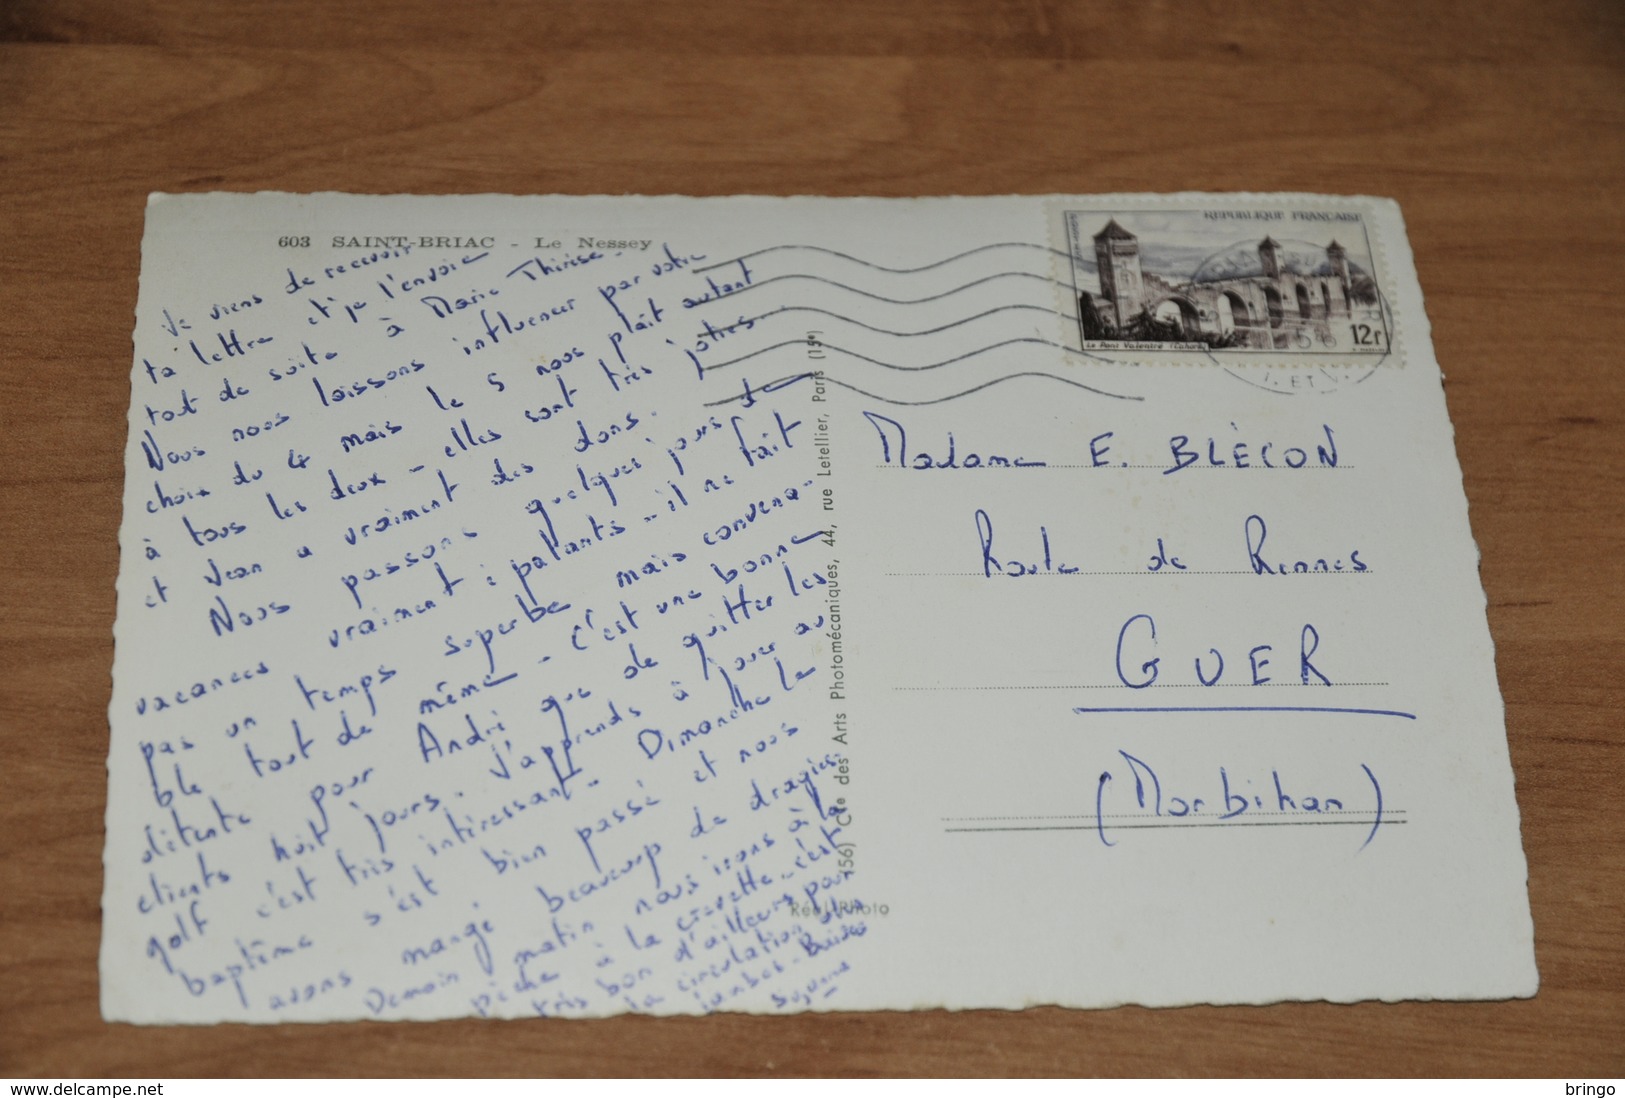 603 SAINT-BRIAC - Le Nessey
Je viens de recevoir
ta lettre et je l'envoie
tout de suite à Marie Thérèse.
Nous nous laissons influencer par votre
choix du 4 mais le 5 nous plaît autant
à tous les deux - elles sont très jolies
et Jean a vraiment des dons.
Nous passons quelques jours de
vacances vraiment épatants - il ne fait
pas un temps superbe mais convena-
ble tout de même - c'est une bonne
détente pour André que de quitter les
clients huit jours. J'apprends à jouer au
golf c'est très intéressant - Dimanche le
baptême s'est bien passé et nous
avons mangé beaucoup de dragées.
Demain matin nous irons à la
pêche à la crevette - c'est
très bon d'ailleurs pour
la circulation des
jambes - Baisers
Suzanne
(56) Cie des Arts Photomécaniques, 44, rue Letellier, Paris (15e)
Réel-Photo
REPUBLIQUE FRANÇAISE
Le Pont Valentré (Cahors)
12f
I. ET V.
Madame E. BLÉCON
Route de Rennes
GUER
(Morbihan)
https://www.delcampe.net
bringo